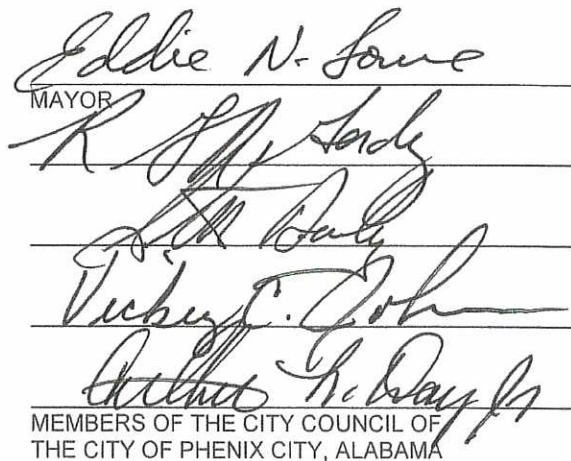 Eddie N. Lowe
MAYOR
R
Vickey C. Joh
Arthur L. Day Jr
MEMBERS OF THE CITY COUNCIL OF
THE CITY OF PHENIX CITY, ALABAMA